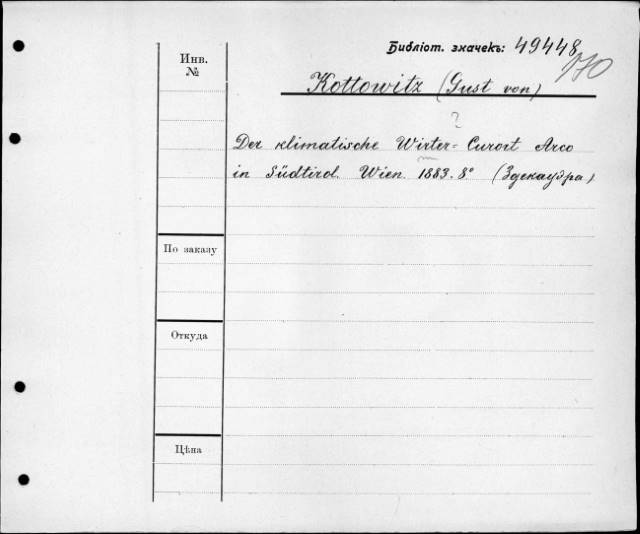 Библіот. значекъ: 49448
170
Инв.
№
Kottowitz (Gust von)
?
Der klimatische Wirter-Curort Arco
in Südtirol. Wien. 1883. 8° (Здекауэра)
По заказу
Откуда
Цѣна